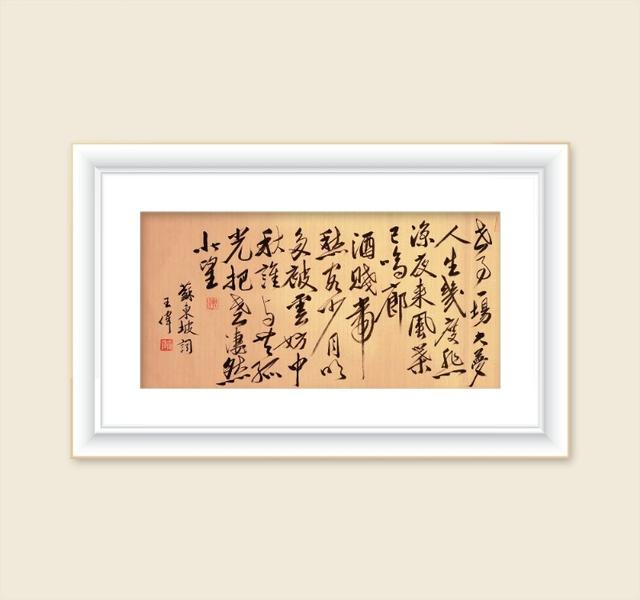 世事一場大夢
人生幾度秋
涼夜来風葉
已鳴廊
酒賤常
愁客少月明
多被雲妨中
秋誰与共孤
光把盞淒然
北望
蘇東坡詞
王偉